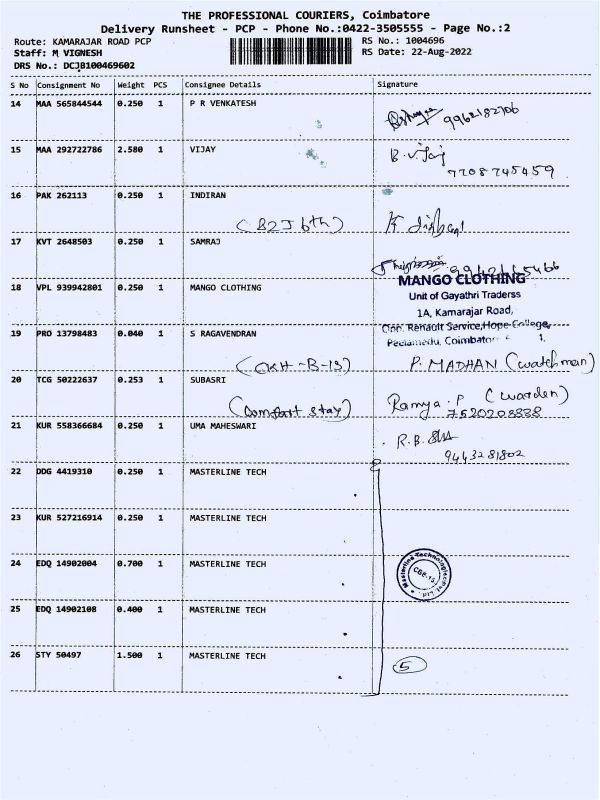 THE PROFESSIONAL COURIERS, Coimbatore
Delivery Runsheet - PCP - Phone No.:0422-3505555 - Page No.:2
Route: KAMARAJAR ROAD PCP RS No.: 1004696
Staff: M VIGNESH RS Date: 22-Aug-2022
DRS No.: DCJB100469602
S No Consignment No Weight PCS Consignee Details Signature
14 MAA 565844544 0.250 1 P R VENKATESH
9962182706
15 MAA 292722786 2.580 1 VIJAY B. Vijay
7708745459
16 PAK 262113 0.250 1 INDIRAN
(82J 6th)
17 KVT 2648503 0.250 1 SAMRAJ
18 VPL 939942801 0.250 1 MANGO CLOTHING
MANGO CLOTHING
Unit of Gayathri Traderss
1A, Kamarajar Road,
Opp. Renault Service, Hope College,
Peelamedu, Coimbator
19 PRO 13798483 0.040 1 S RAGAVENDRAN
(CKH-B-13) P. MADHAN (watchman)
20 TCG 50222637 0.253 1 SUBASRI
(Comfort stay) Ramya. P (warden)
7520208838
21 KUR 558366684 0.250 1 UMA MAHESWARI
R.B.
9443281802
22 DDG 4419310 0.250 1 MASTERLINE TECH
23 KUR 527216914 0.250 1 MASTERLINE TECH
24 EDQ 14902004 0.700 1 MASTERLINE TECH
Masterline Technologies Pvt. Ltd.
CBE-15
25 EDQ 14902108 0.400 1 MASTERLINE TECH
26 STY 50497 1.500 1 MASTERLINE TECH 5